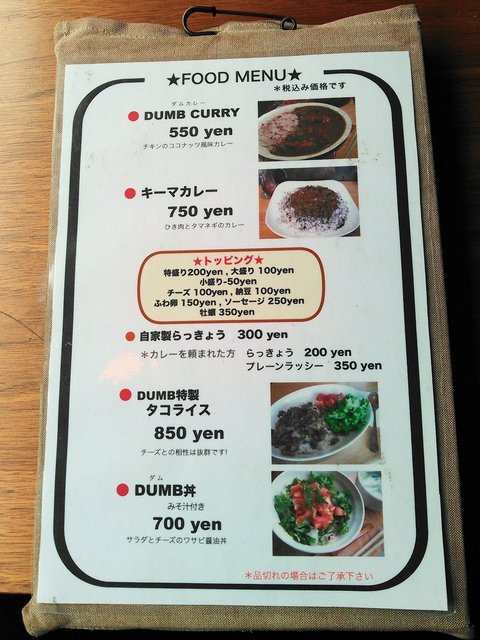 ★FOOD MENU★
＊税込み価格です
ダムカレー
DUMB CURRY
550 yen
チキンのココナッツ風味カレー
キーマカレー
750 yen
ひき肉とタマネギのカレー
★トッピング★
特盛り200yen , 大盛り 100yen
小盛り-50yen
チーズ 100yen , 納豆 100yen
ふわ卵 150yen , ソーセージ 250yen
牡蠣 350yen
自家製らっきょう 300 yen
＊カレーを頼まれた方 らっきょう 200 yen
プレーンラッシー 350 yen
DUMB特製
タコライス
850 yen
チーズとの相性は抜群です!
ダム
DUMB丼
みそ汁付き
700 yen
サラダとチーズのワサビ醤油丼
＊品切れの場合はご了承下さい